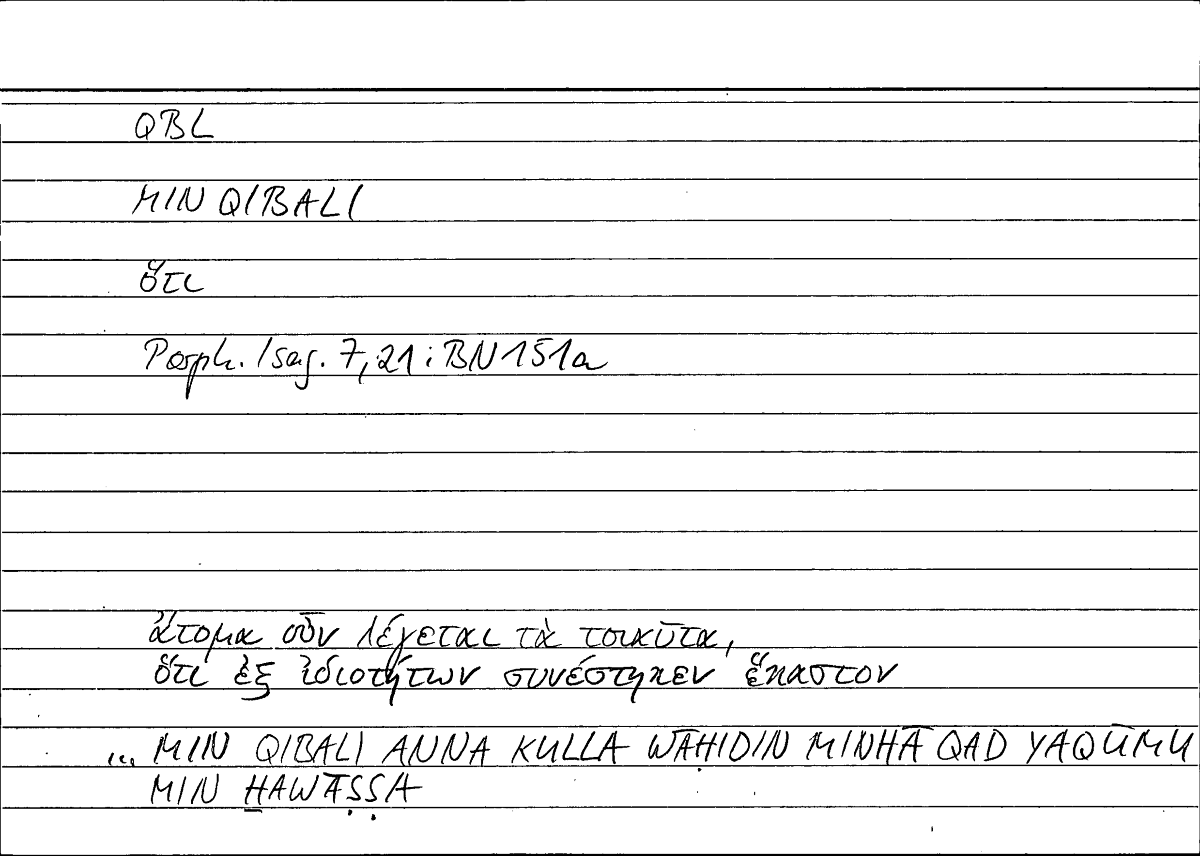 QBL
MIN QIBALI
ὅτι
Porph. Isag. 7,21 : BN 151a
ἄτομα οὖν λέγεται τὰ τοιαῦτα,
ὅτι ἐξ ἰδιοτήτων συνέστηκεν ἕκαστον
... MIN QIBALI ANNA KULLA WĀḤIDIN MINHĀ QAD YAQŪMU
MIN H̱AWĀṢṢA